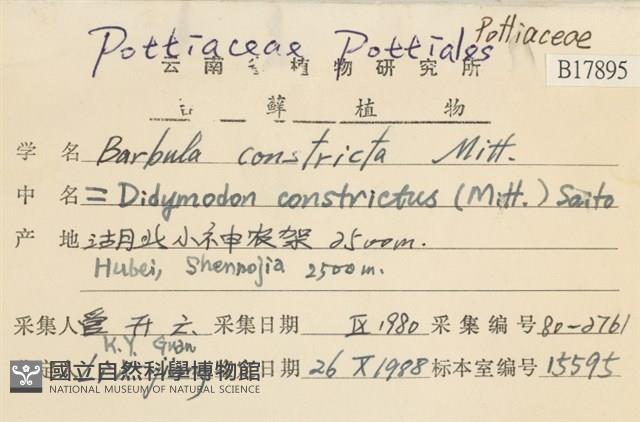 Pottiaceae Pottiales Pottiaceae
云南 植物研究所
B17895
藓植物
学名 Barbula constricta Mitt.
中名 = Didymodon constrictus (Mitt.) Saito
产地 湖北小神农架 2500m.
Hubei, Shennojia 2500m.
采集人 开云 采集日期 IX 1980 采集编号 80-2761
K.Y. Guan
日期 26 X 1988 标本室编号 15595
國立自然科學博物館
NATIONAL MUSEUM OF NATURAL SCIENCE